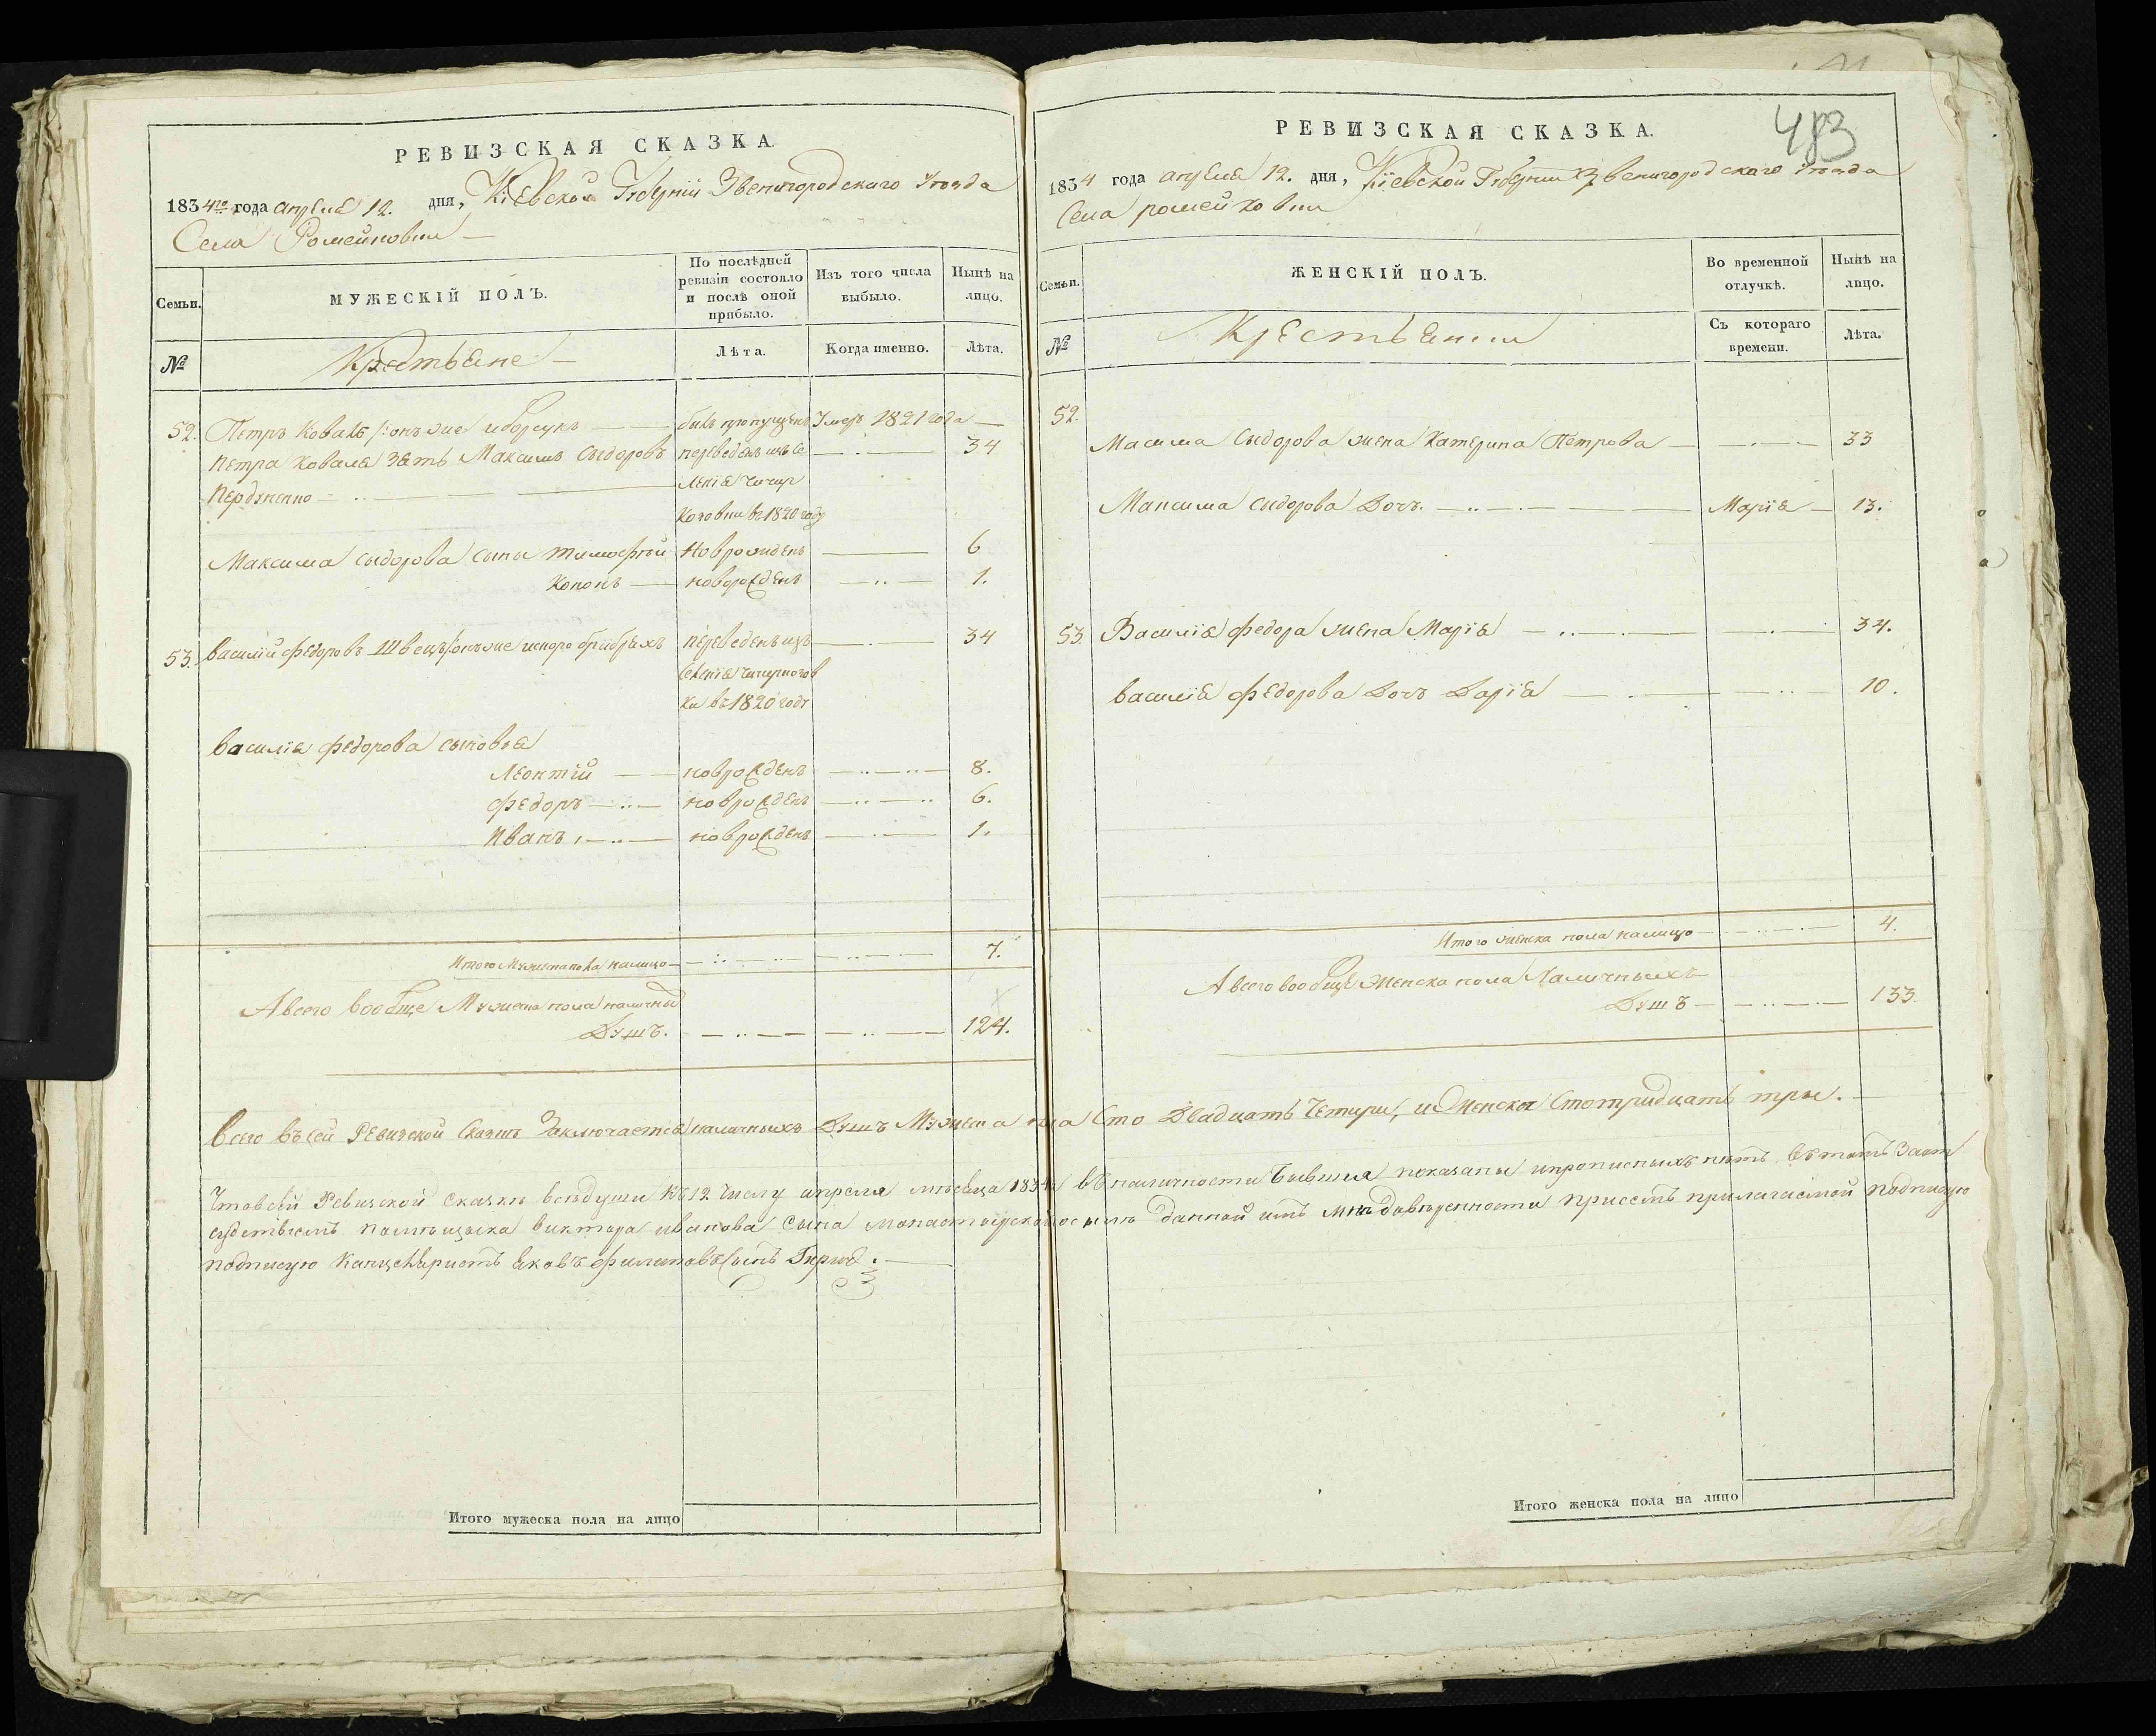 РЕВИЗСКАЯ СКАЗКА
1834го года апреля 12. дня, Кіевской Губерніи Звенигородского уезда
Села Ромейковки
Семьи.
МУЖЕСКІЙ ПОЛЪ.
По послѣдней ревизіи состояло и послѣ оной прибыло.
Изъ того числа выбыло.
Нынѣ на лицо.
№
Крестьяне
Лѣта.
Когда именно.
Лѣта.
52. Петръ Коваль онъ же билъ пропущенъ Умеръ 1821 года
Петра Коваля зять Максимъ Сыдоровъ переведенъ изъ се 34
ленія
в 1820 году
Максима Сыдорова сыны Тимофѣй новрожденъ 6
Кононъ новорожденъ 1.
53. Василій Федоровъ Швецъ онъ же переведенъ изъ 34
селенія
ка въ 1820 году
Василія Федорова сыновья
Леонтій новрожденъ 8.
Федоръ новрожденъ 6.
Иванъ новрожденъ 1.
Итого Мужеска пола налицо 7.
А всего вообще Мужеска пола наличных
Душъ. 124.
РЕВИЗСКАЯ СКАЗКА.
483
1834 года апреля 12. дня, Кіевской Губерніи Звенигородского уезда
Села Ромейковки
Семьи.
ЖЕНСКІЙ ПОЛЪ.
Во временной отлучкѣ.
Нынѣ на лицо.
№
Крестьянки
Съ котораго времени.
Лѣта.
52.
Максима Сыдорова жена Катерина Петрова 33
Максима Сыдорова Дочъ. Марія 13.
53. Василія Федора жена Марія 34.
Василія Федорова Дочъ Дарія 10.
Итого женска пола налицо 4.
А всего вообще Женска пола Наличныхъ
Душъ 133.
Всего въ сей Ревизской Сказке Заключается наличныхъ Душъ Мужеска пола Сто Двадцать Четири, и Женска Сто тридцать три.
Что в сей Ревизской сказкѣ всѣ души къ 12 числу апреля месяца 1834 в наличности бывшия показаны и прописныхъ нѣтъ. В томъ
помѣщика Виктора Иванова Сына данной отъ довѣренности при семъ прилагаемой подписую
подписую Канцеляристъ Яковъ Филиповъ Сынъ
Итого мужеска пола на лицо
Итого женска пола на лицо